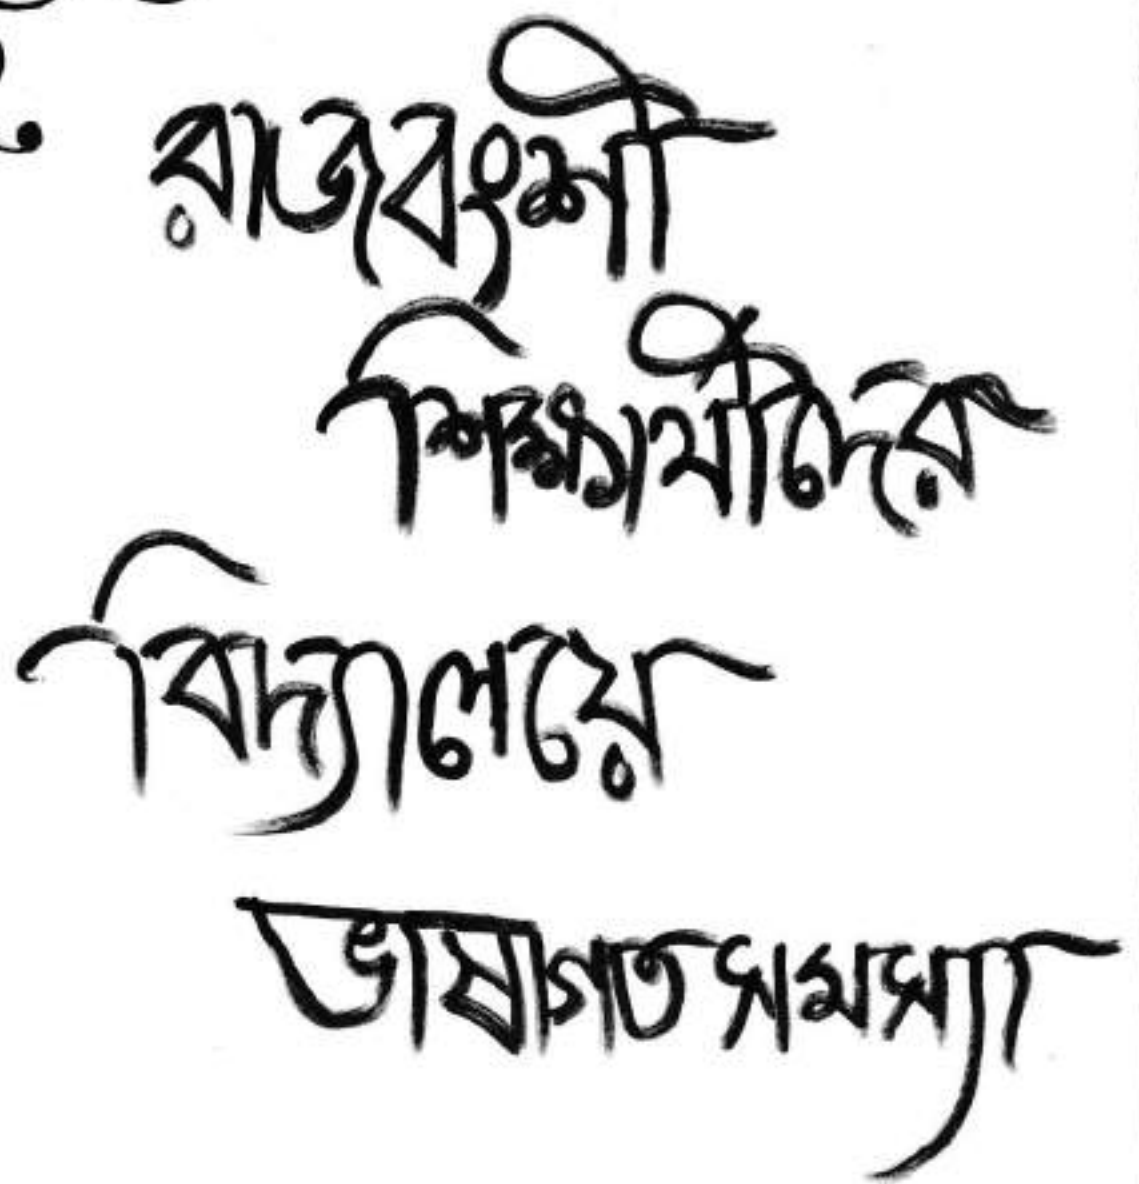 রাজবংশী
শিক্ষার্থীদের
বিদ্যালয়ে
ভাষাগত সমস্যা